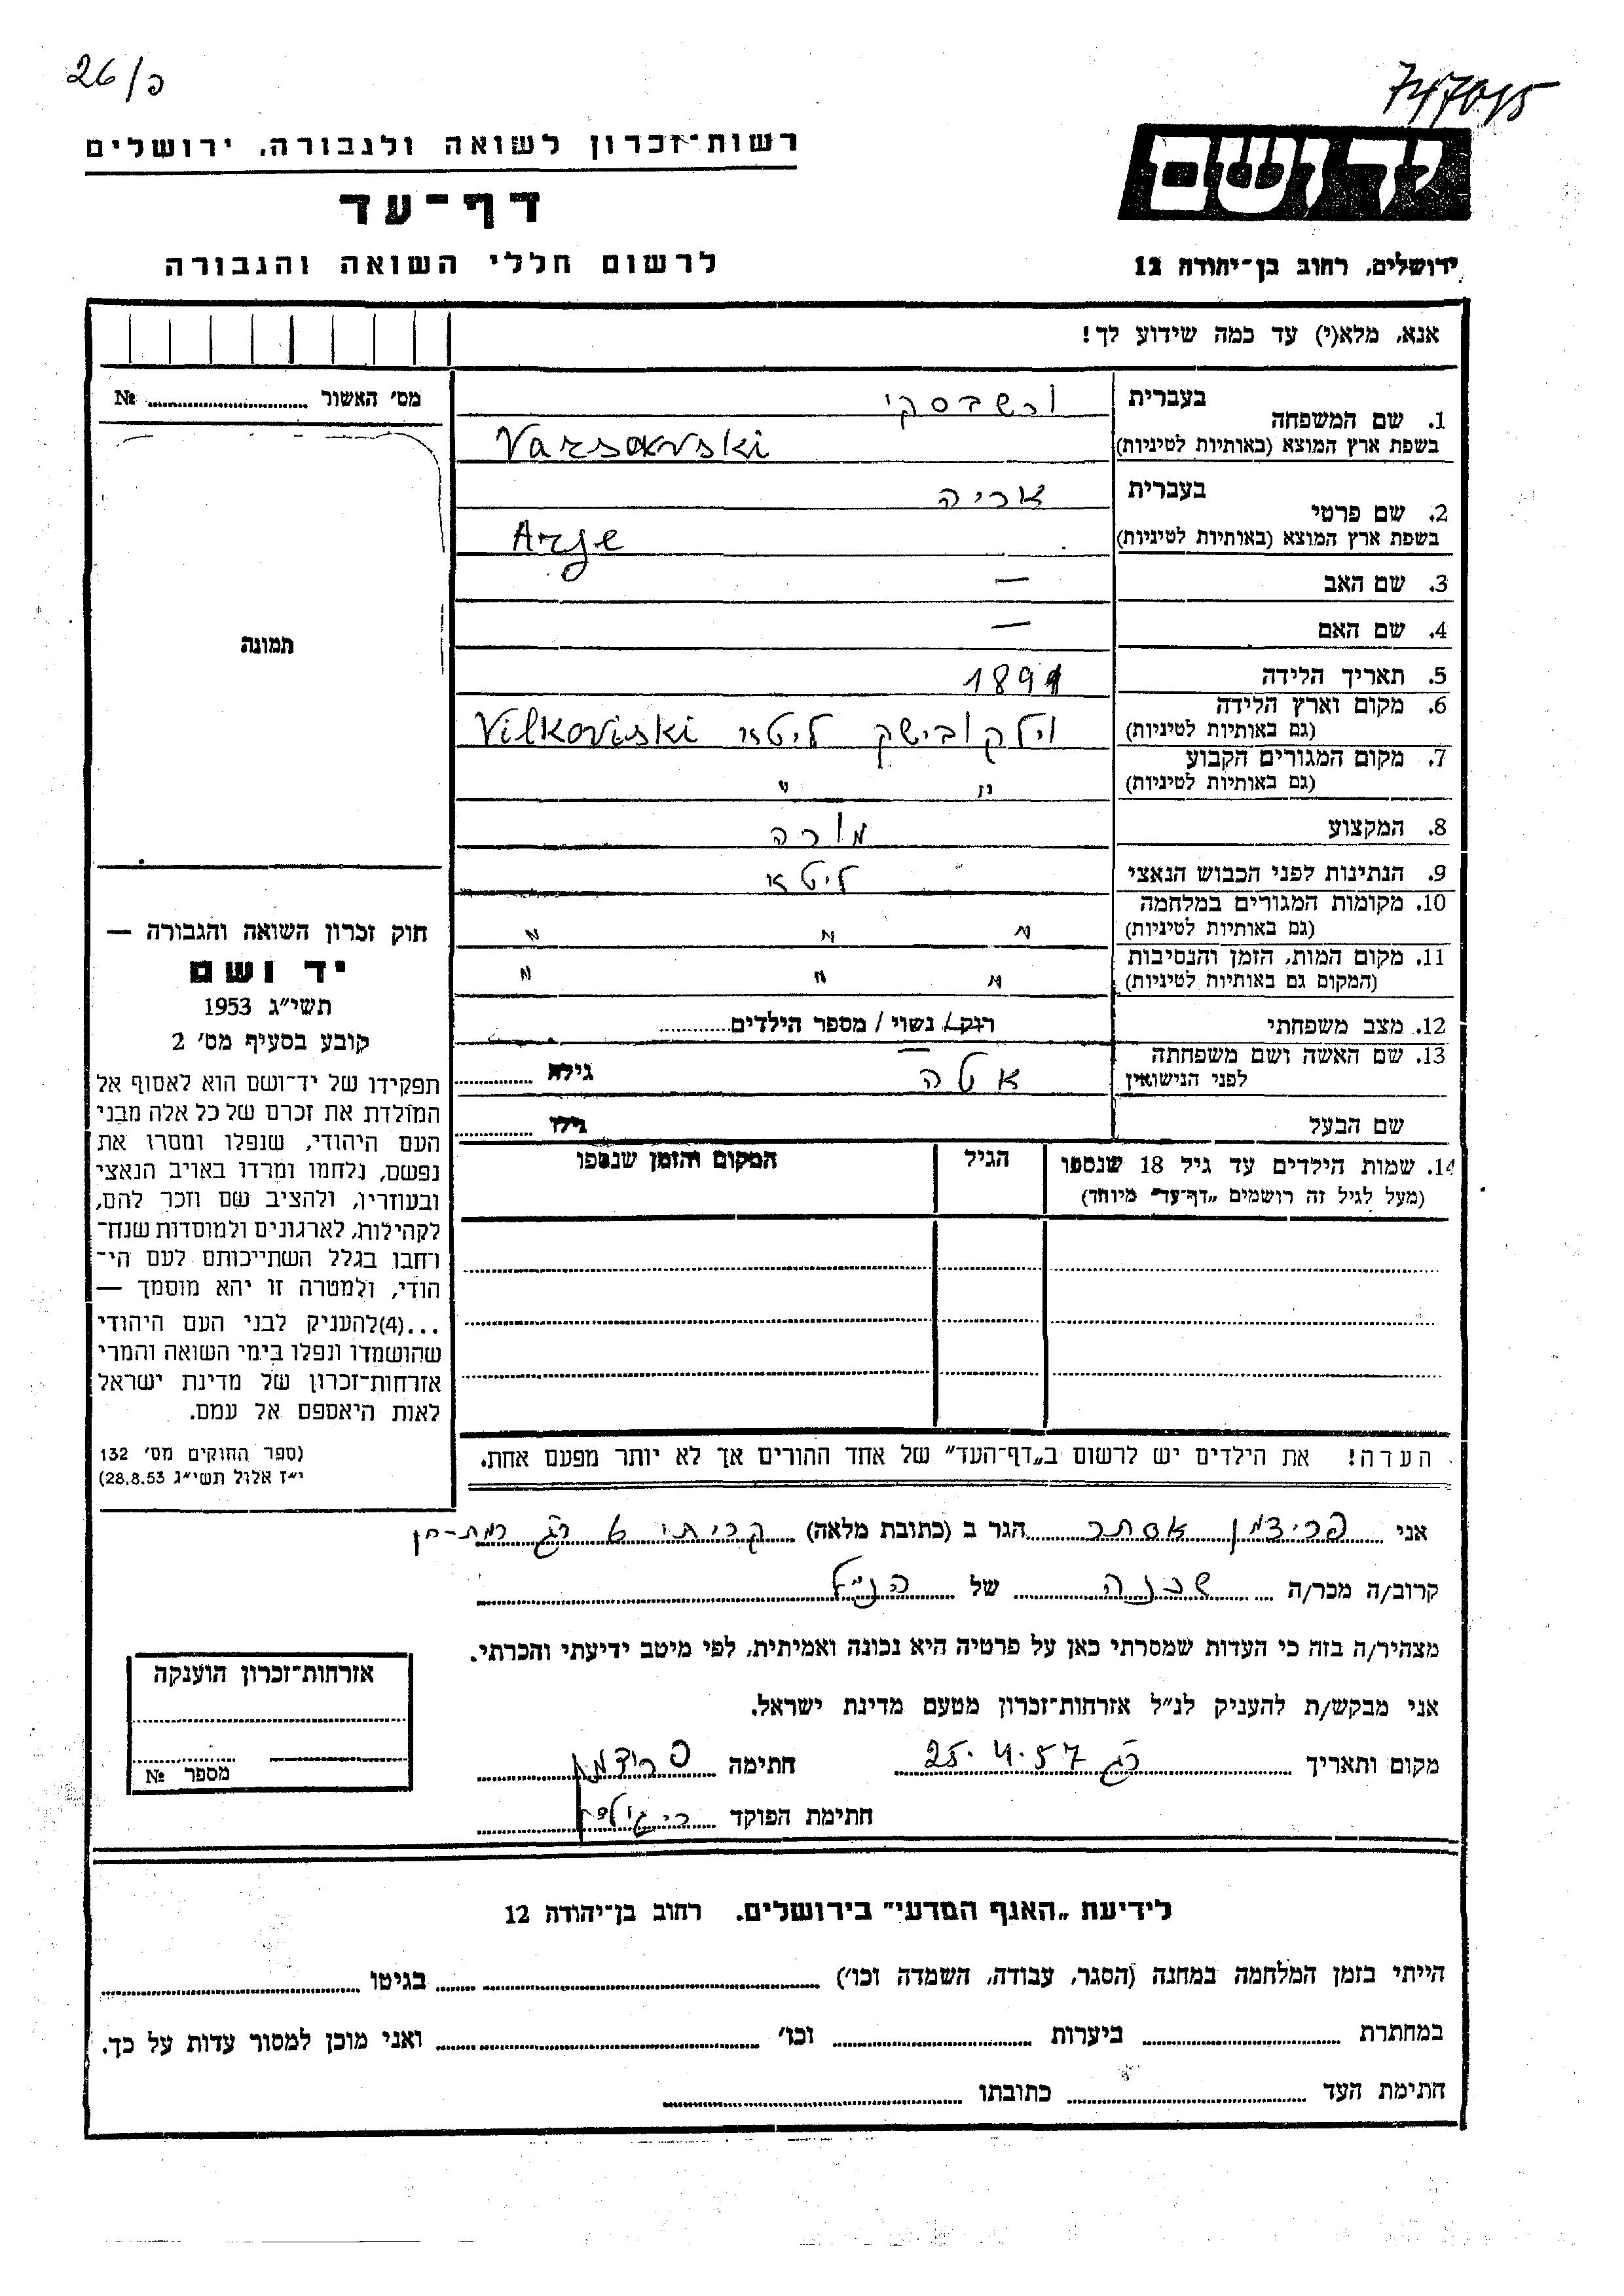 26/פ
רשות־זכרון לשואה ולגבורה, ירושלים
דף־עד
לרשום חללי השואה והגבורה
יד ושם
ירושלים, רחוב בן־יהודה 12
אנא, מלא(י) עד כמה שידוע לך!
מס׳ האשור ........ №
תמונה
1. שם המשפחה
בעברית ורשבסקי
בשפת ארץ המוצא (באותיות לטיניות) Varsavski
2. שם פרטי
בעברית אריה
בשפת ארץ המוצא (באותיות לטיניות) Arje
3. שם האב —
4. שם האם —
5. תאריך הלידה 1891
6. מקום וארץ הלידה
(גם באותיות לטיניות) וילקובישק ליטא Vilkoviski
7. מקום המגורים הקבוע
(גם באותיות לטיניות) " "
8. המקצוע מורה
9. הנתינות לפני הכבוש הנאצי ליטא
10. מקומות המגורים במלחמה
(גם באותיות לטיניות) " " "
11. מקום המות, הזמן והנסיבות
(המקום גם באותיות לטיניות) " " "
12. מצב משפחתי רווק/ נשוי / מספר הילדים........
13. שם האשה ושם משפחתה
לפני הנישואין אטה גילה ........
שם הבעל גילו ........
14. שמות הילדים עד גיל 18 שנספו הגיל המקום והזמן שנספו
(מעל לגיל זה רושמים „דף־עד״ מיוחד)
חוק זכרון השואה והגבורה —
יד ושם
תשי״ג 1953
קובע בסעיף מס׳ 2
תפקידו של יד־ושם הוא לאסוף אל
המולדת את זכרם של כל אלה מבני
העם היהודי, שנפלו ומסרו את
נפשם, נלחמו ומרדו באויב הנאצי
ובעוזריו, ולהציב שם וזכר להם,
לקהילות, לארגונים ולמוסדות שנח־
רחבו בגלל השתייכותם לעם הי־
הודי, ולמטרה זו יהא מוסמך —
...(4)להעניק לבני העם היהודי
שהושמדו ונפלו בימי השואה והמרי
אזרחות־זכרון של מדינת ישראל
לאות היאספם אל עמם.
(ספר החוקים מס׳ 132
י״ז אלול תשי״ג 28.8.53)
הערה! את הילדים יש לרשום ב„דף־העד״ של אחד ההורים אך לא יותר מפעם אחת.
אני פרידמן אסתר הגר ב (כתובת מלאה) קריתי א רג רמת-חן
קרוב/ה מכר/ה שכנה של הנ״ל
מצהיר/ה בזה כי העדות שמסרתי כאן על פרטיה היא נכונה ואמיתית, לפי מיטב ידיעתי והכרתי.
אני מבקש/ת להעניק לנ״ל אזרחות־זכרון מטעם מדינת ישראל.
מקום ותאריך רג 25.4.57 חתימה פרידמן
חתימת הפוקד
אזרחות־זכרון הוענקה
מספר №
לידיעת „האגף המדעי״ בירושלים. רחוב בן־יהודה 12
הייתי בזמן המלחמה במחנה (הסגר, עבודה, השמדה וכו׳) ........ בגיטו ........
במחתרת ........ ביערות ........ וכו׳ ........ ואני מוכן למסור עדות על כך.
חתימת העד ........ כתובתו ........